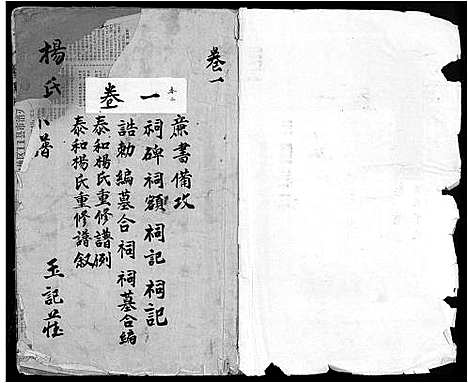 卷一
一卷
廉書備攷
祠碑祠額祠記祠記
誥勅編墓合祠祠墓合編
泰和楊氏重修譜例
泰和楊氏重修譜叙
楊氏
譜
玉記莊